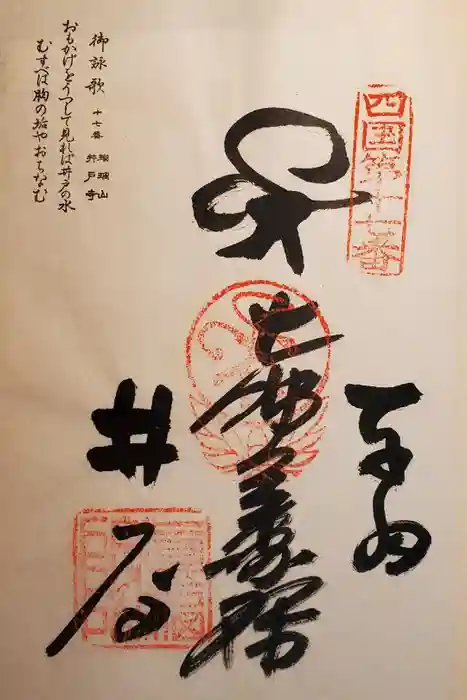 四国第十七番
奉納
七佛薬師
井戸寺
御詠歌 十七番 瑠璃山 井戸寺
おもかげをうつして見れば井戸の水
むすべば胸の垢やおちなむ